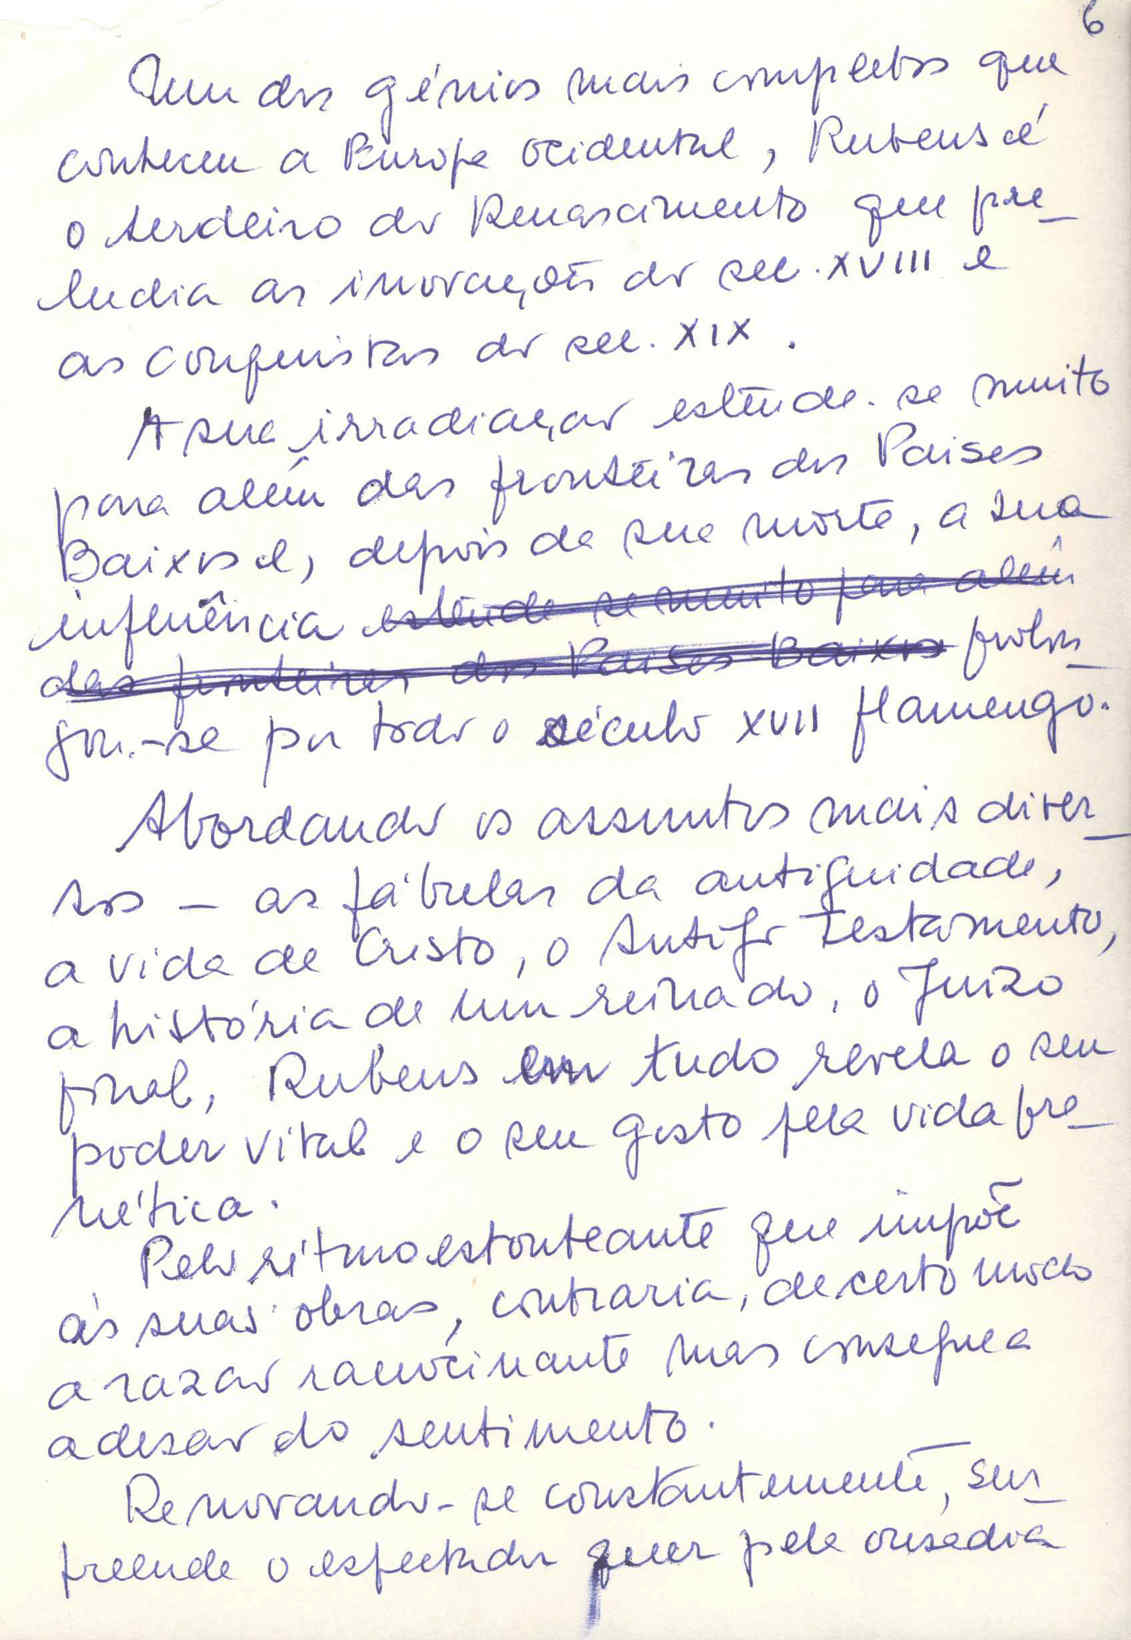 6
Um dos génios mais completos que
conheceu a Europa ocidental, Rubens é
o herdeiro do Renascimento que pre_
ludia as inovações do sec. XVIII e
as conquistas do sec. XIX.
A sua irradiação estende-se muito
para além das fronteiras dos Paises
Baixos e, depois da sua morte, a sua
influência estende se muito para além
das fronteiras dos Paises Baixos prolon_
gou-se por todo o século XVII flamengo.
Abordando os assuntos mais diver_
sos – as fábulas da antiguidade,
a vida de Cristo, o Antigo Testamento,
a história de um reinado, o Juizo
final, Rubens em tudo revela o seu
poder vital e o seu gosto pela vida fre_
nética.
Pelo ritmo estonteante que impõe
às suas obras, contraria, de certo modo
a razão raciocinante mas consegue a
adesão do sentimento.
Renovando-se constantemente, sur_
preende o espectador quer pela ousadia